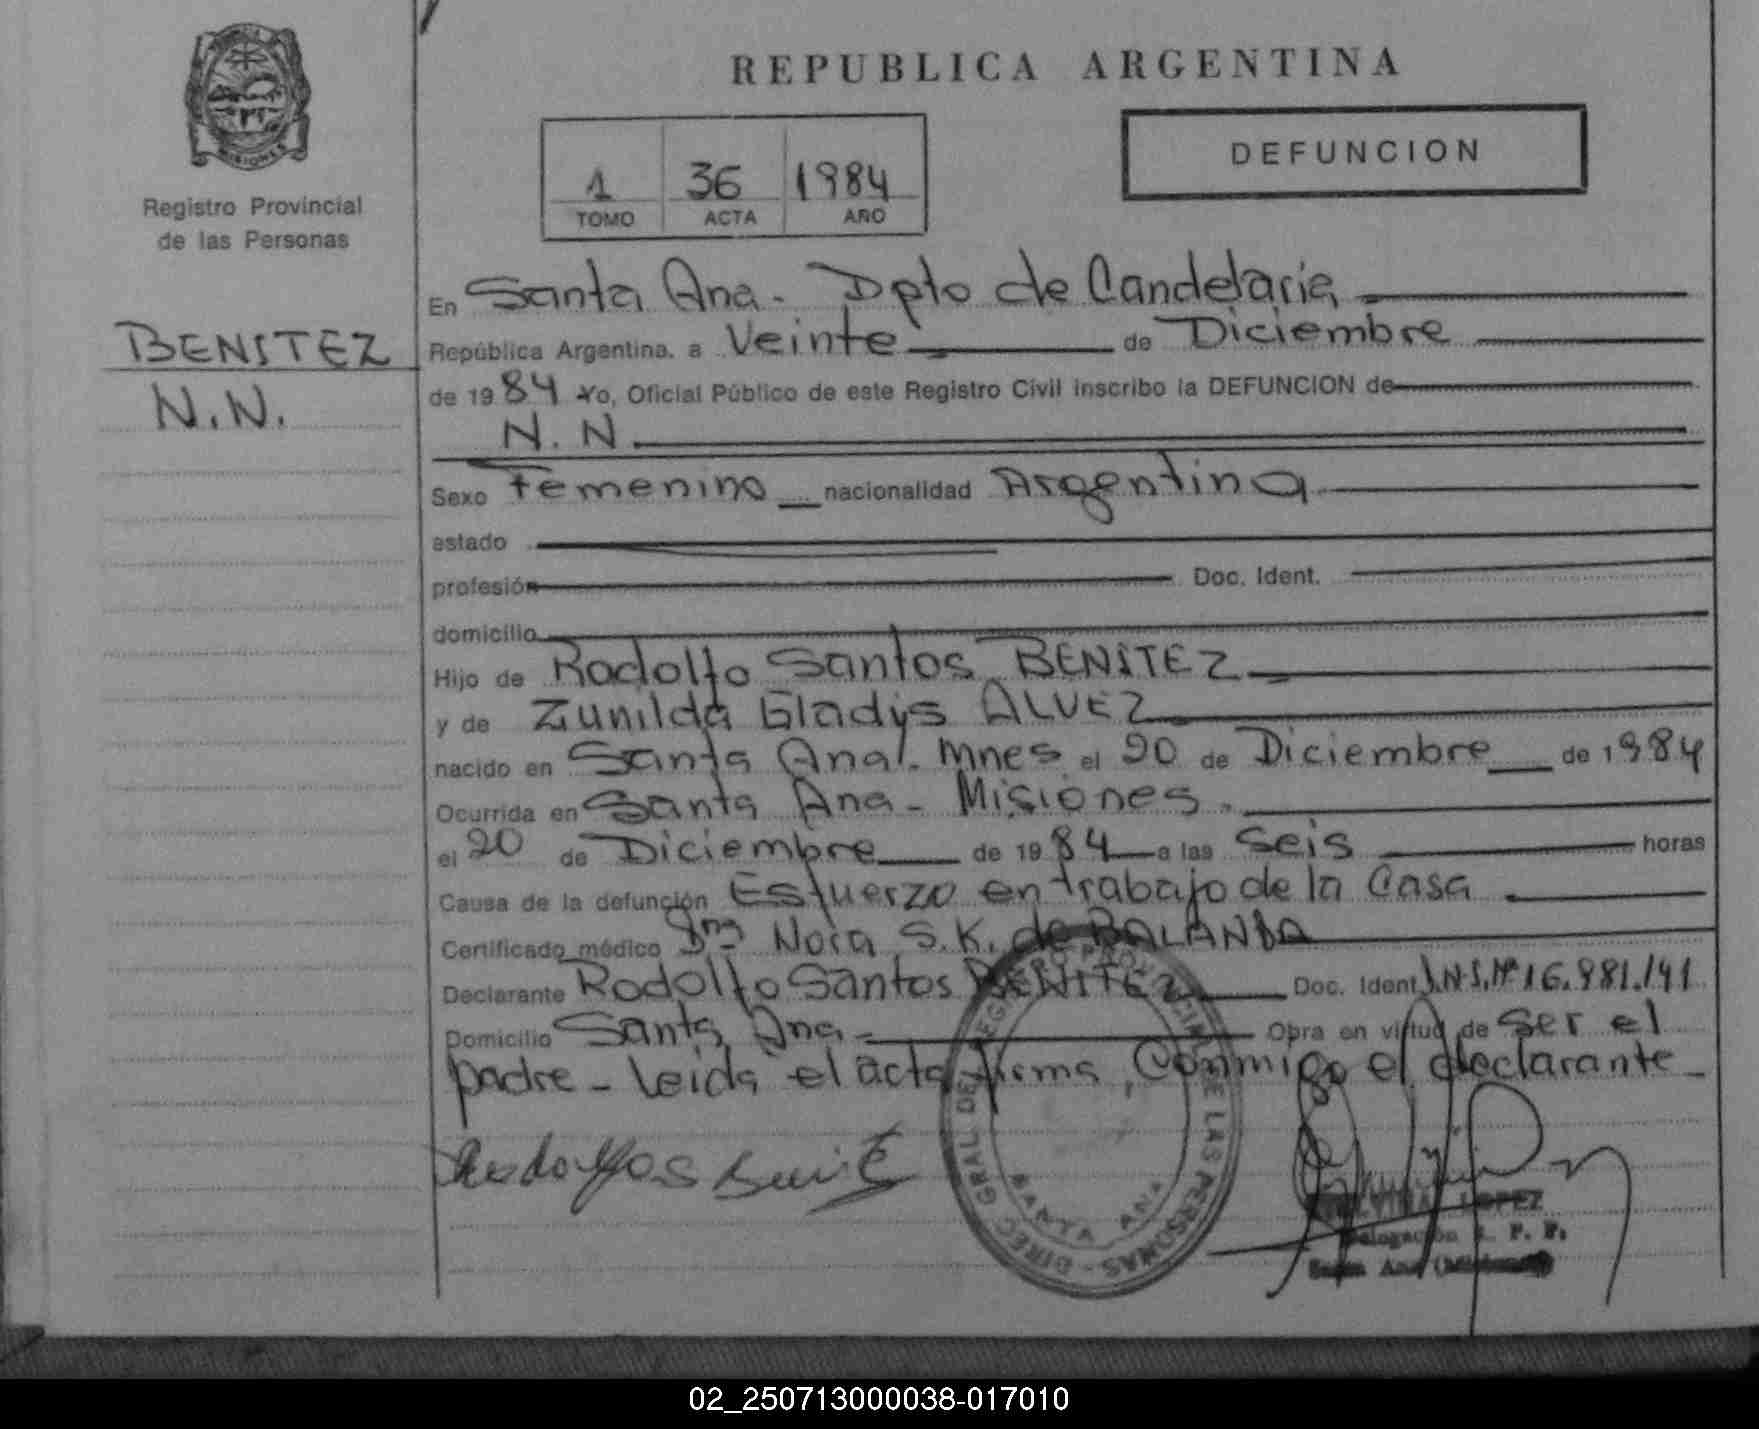 MISIONES
Registro Provincial
de las Personas
BENITEZ
N.N.
REPUBLICA ARGENTINA
1 36 1984
TOMO ACTA AÑO
DEFUNCION
En Santa Ana. Dpto de Candelaria
República Argentina, a Veinte de Diciembre
de 1984 Yo, Oficial Público de este Registro Civil inscribo la DEFUNCION de
N. N
Sexo Femenino nacionalidad Argentina
estado
profesión Doc. Ident.
domicilio
Hijo de Rodolfo Santos BENITEZ
y de Zunilda Gladys ALVEZ
nacido en Santa Ana. Mnes el 20 de Diciembre de 1984
Ocurrida en Santa Ana - Misiones.
el 20 de Diciembre de 1984 a las Seis horas
Causa de la defunción Esfuerzo en trabajo de la Casa
Certificado médico Dra Nora S.K. de BALANDA
Declarante Rodolfo Santos BENITEZ Doc. Ident. D.N.I. Nº 16.981.141
Domicilio Santa Ana - Obra en virtud de Ser el
padre - Leida el acta firma Conmigo el declarante -
DIREC GRAL DEL REGISTRO PROVINCIAL DE LAS PERSONAS -
SANTA ANA
LOPEZ
Delegación R. P. P.
Santa Ana (Misiones)
02_250713000038-017010